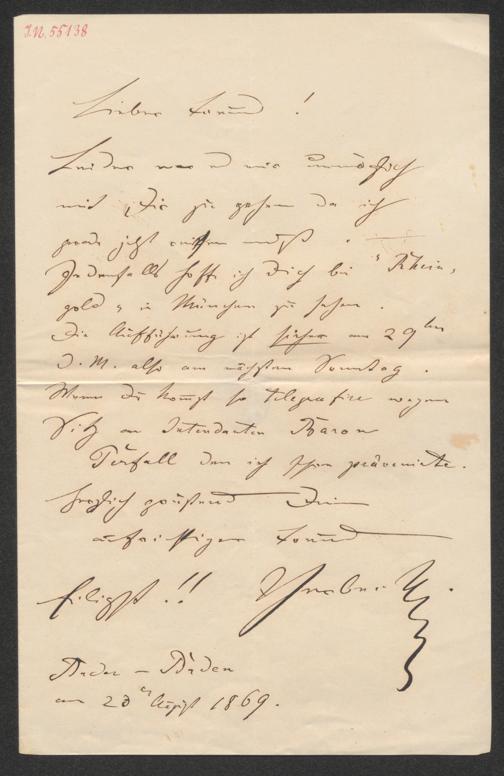 I.N. 55138
Lieber Freund !
Leider war es mir unmöglich
mit Dir zu gehen da ich
grade jetzt muß .
Jedenfalls hoffe ich Dich bei "Rhein-
gold" in München zu sehen .
Die Aufführung ist sicher am 29ten
d. M. also am nächsten Sonntag .
Wenn Du kommst so telegrafire wegen
Sitz an Intendanten Baron
Perfall den ich schon prävenirte .
Herzlich grüßend Dein
aufrichtiger Freund
Eiligst !!
Baden - Baden
am August 1869 .